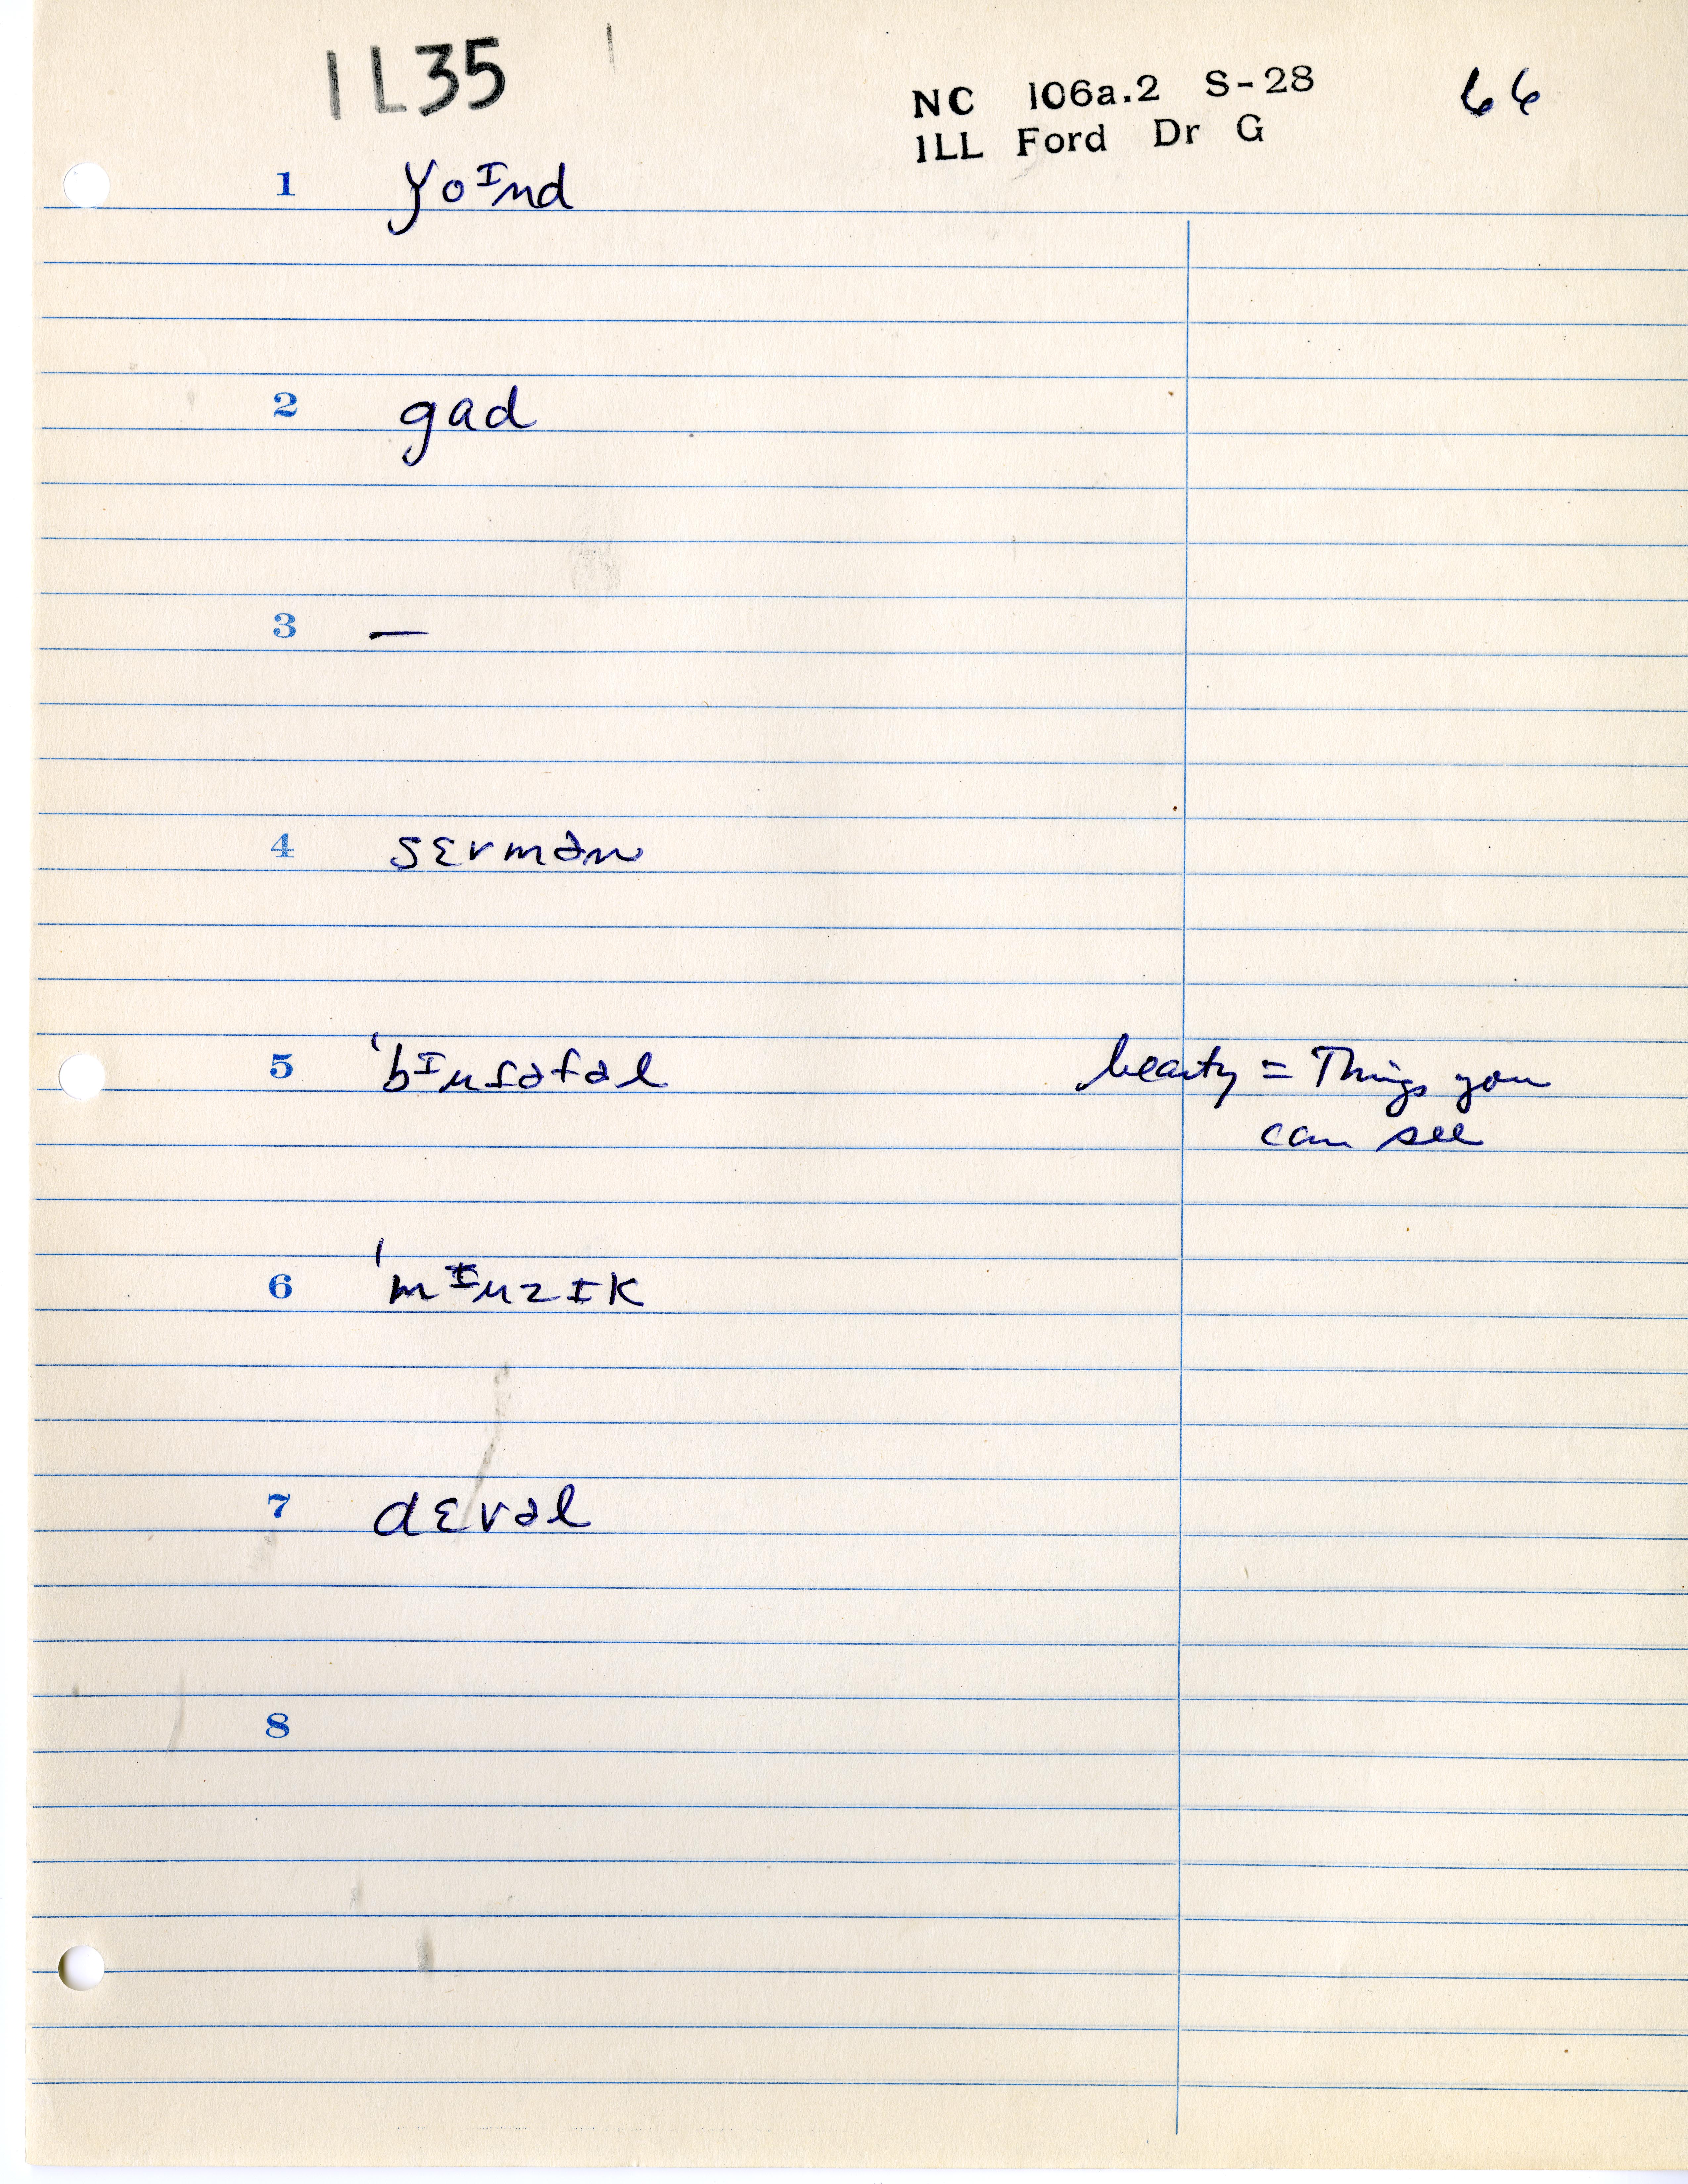 1L35
NC 106a.2 S-28
1LL Ford Dr G
66
1 ɣoᴵnd
2 gad
3 —
4 sɛrmən
5 'bᴵuɾəfəl beauty = Things you
can see
6 'mᴵuzɪk
7 dɛvəl
8